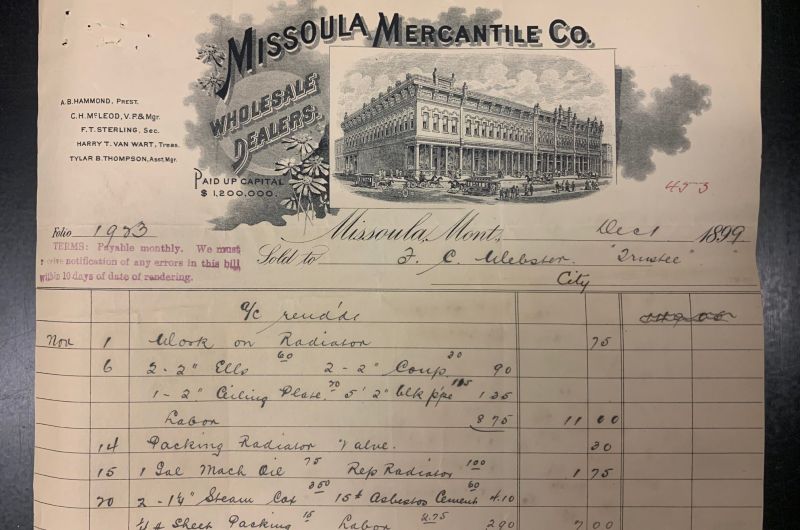 MISSOULA MERCANTILE CO.
WHOLESALE
DEALERS.
A.B. HAMMOND, PREST.
C.H. McLEOD, V.P. & Mgr.
F.T. STERLING, Sec.
HARRY T. VAN WART, Treas.
TYLAR B. THOMPSON, Asst. Mgr.
PAID UP CAPITAL
$ 1,200,000.
453
Folio 1923 Missoula, Mont., Dec 1 1899
TERMS: Payable monthly. We must
receive notification of any errors in this bill
within 10 days of date of rendering.
Sold to F. C. Webster. "Trustee"
City
a/c rend'd
Nov 1 Work on Radiator 75
6 2-2" Ells 60 2-2" Coup. 30 90
1-2" Ceiling Plate. 5' 2" blk pipe 1 35
Labor 8 75 11 00
14 Packing Radiator Valve. 30
15 1 Gal Mach Oil 75 Rep Radiator 1 00 1 75
20 2-1¼" Steam 3 50 15# Asbestos Cement 60 4.10
Sheet Packing 15 Labor 2.75 2 90 7 00